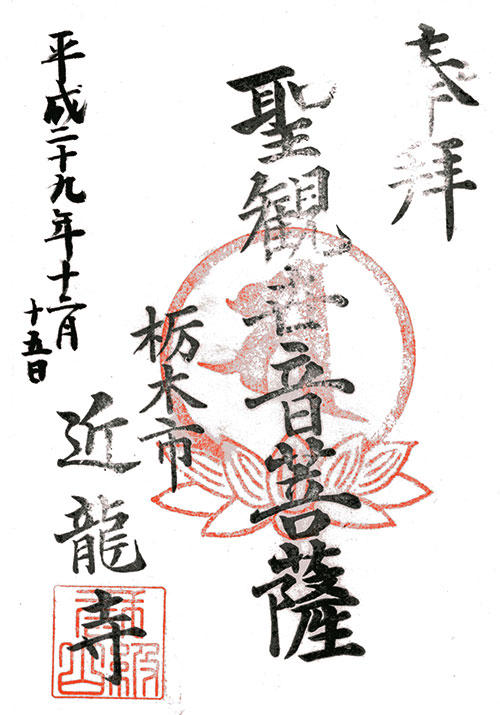 奉拝
聖観世音菩薩
栃木市
近龍寺
平成二十九年十二月
十五日